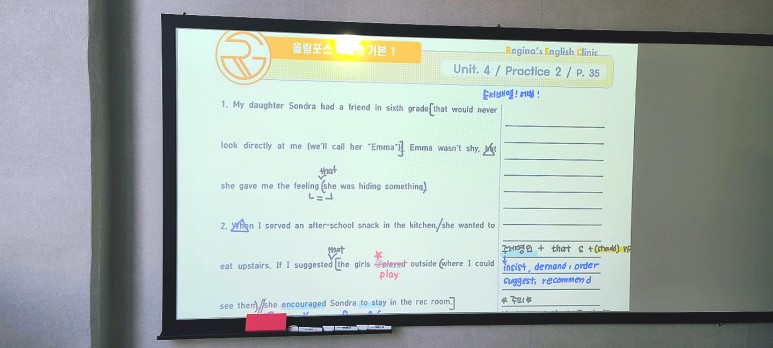 올림포스 기본 1
Regina's English Clinic
Unit. 4 / Practice 2 / P. 35
1. My daughter Sondra had a friend in sixth grade[that would never
look directly at me (we'll call her "Emma")]. Emma wasn't shy, but
that
she gave me the feeling (she was hiding something)
2. When I served an after-school snack in the kitchen,/she wanted to
that
eat upstairs. If I suggested [the girls played outside (where I could
play
see them)//she encouraged Sondra to stay in the rec room.]
+ that S +(should) VR
insist, demand, order
suggest, recommend
*주의*